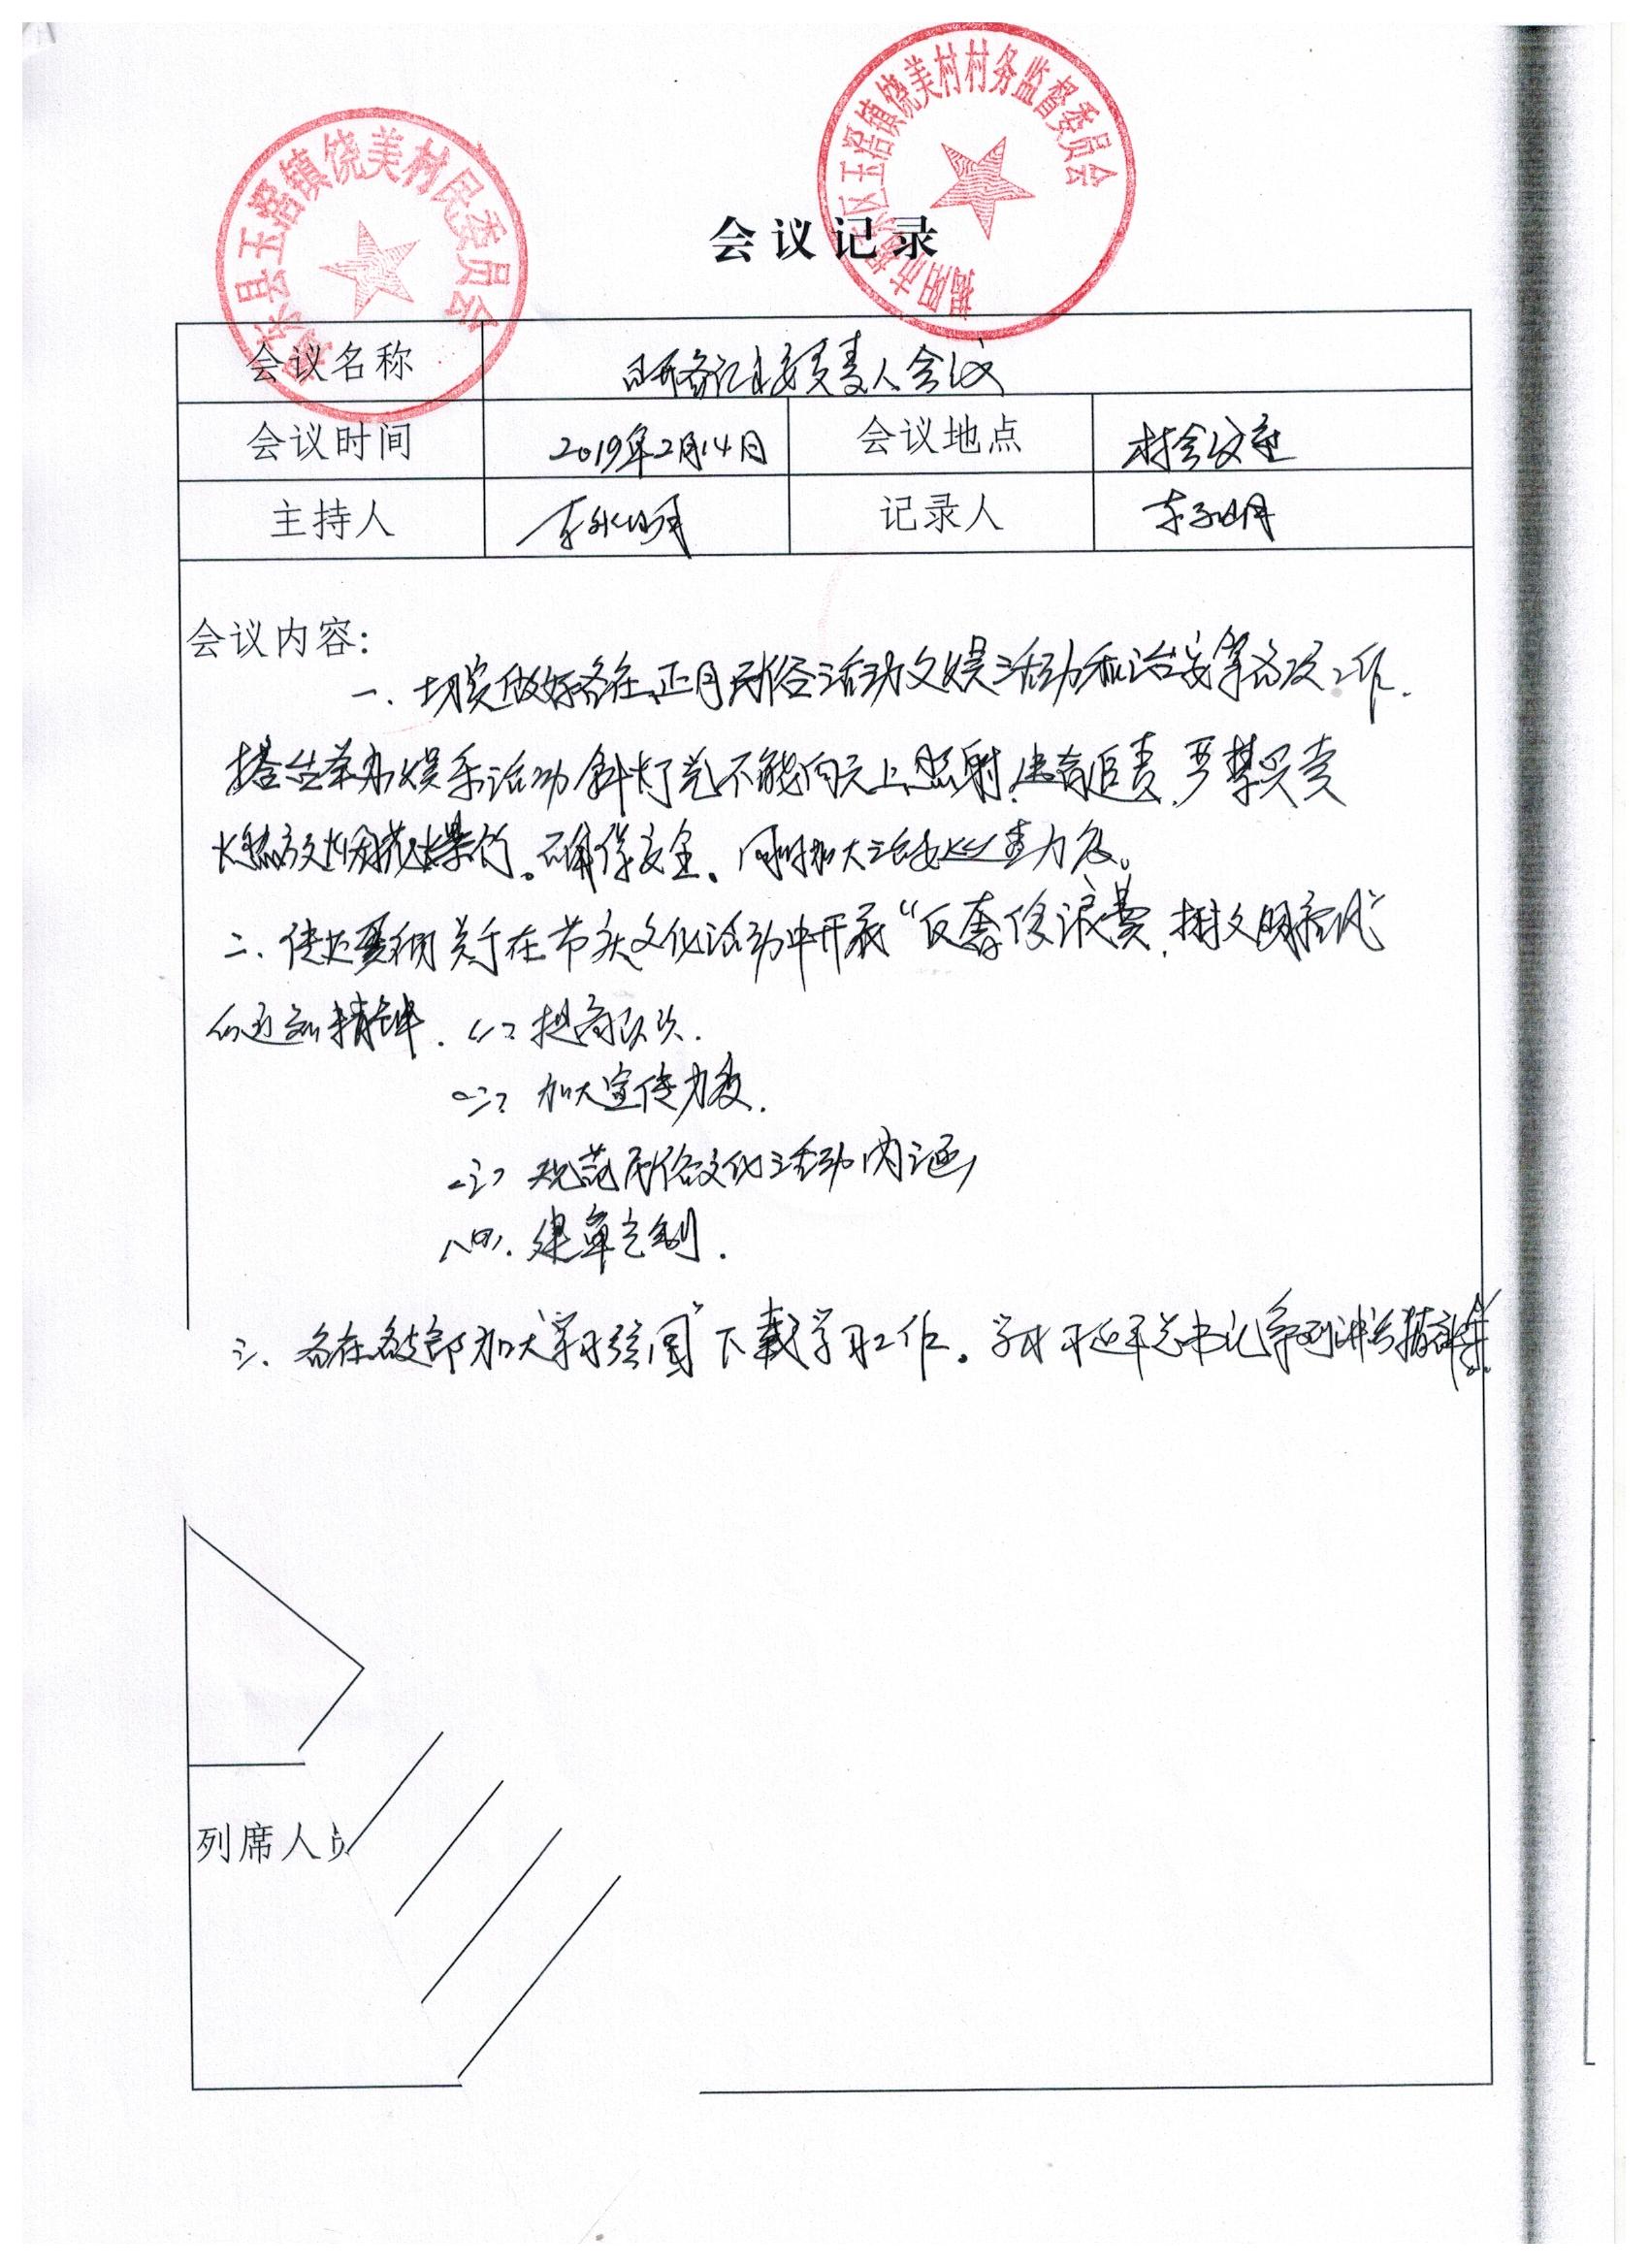 揭东县玉滘镇饶美村民委员会
揭阳市揭东区玉滘镇饶美村村务监督委员会
会议记录
会议名称 召开各社主要负责人会议
会议时间 2019年2月14日 会议地点 村会议室
主持人 记录人
会议内容:
一、切实做好各社正月民俗活动文娱活动和治安等各项工作.
搭台举办娱乐活动 灯光不能向天上照射,违者追责,严禁买卖
燃放烟花爆竹。确保安全、同时加大 查力度。
二、传达 关于在节庆文化活动中开展“反奢侈浪费,树文明新风”
的通知精神. (一)提高认识.
(二)加大宣传力度.
(三)规范民俗文化活动内涵,
(四).建章立制.
三、各社各支部加大“学习强国”下载学习工作。学习习近平总书记系列讲话精神
列席人员